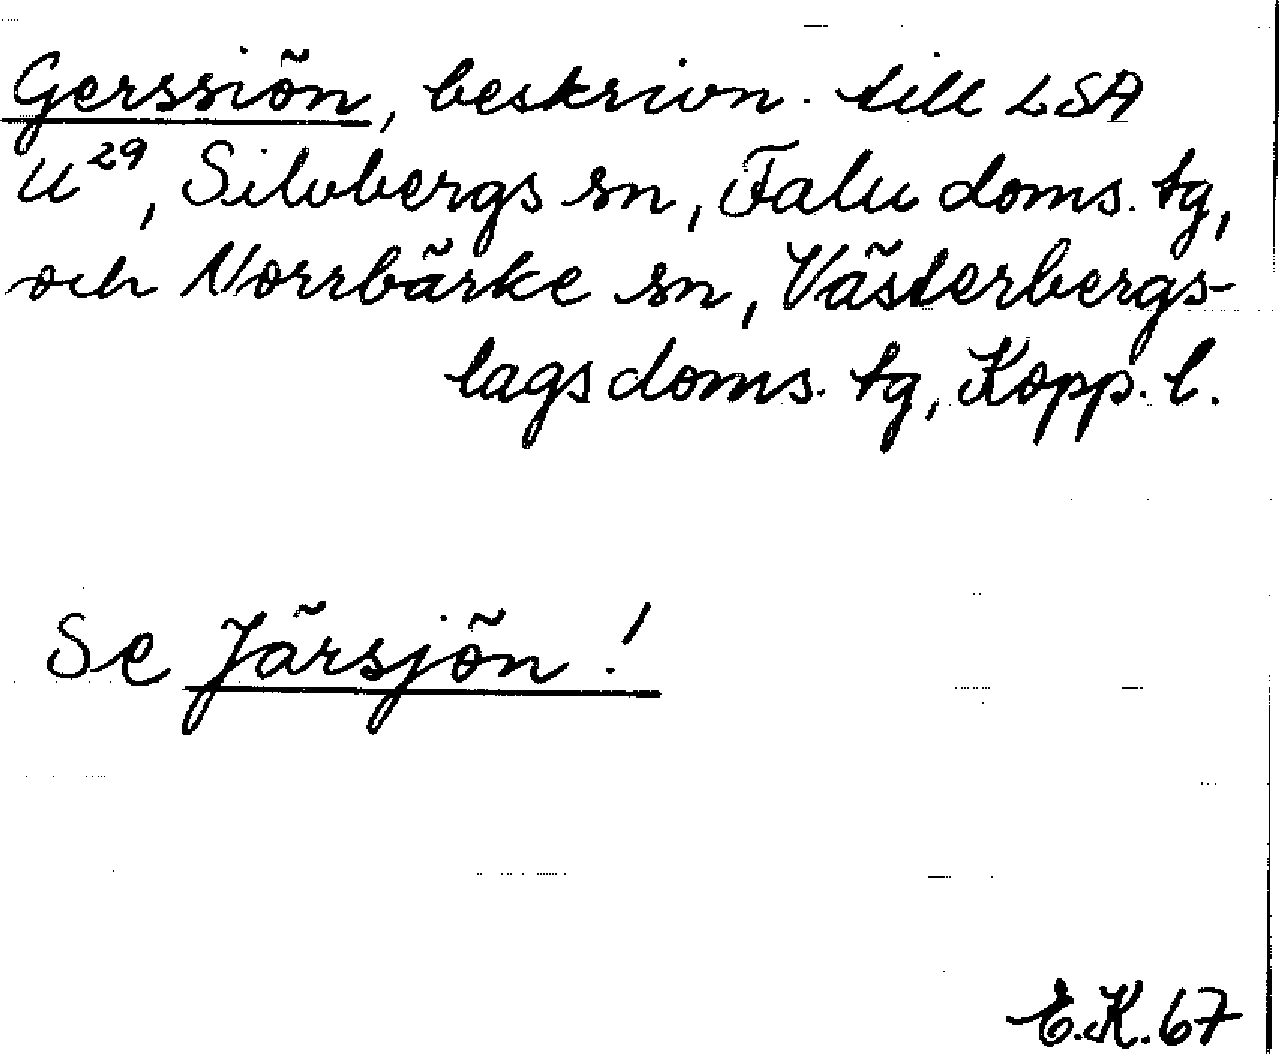 Gerssiön, beskrivn. till LSA
U²⁹, Silvbergs sn, Falu doms. tg,
och Norrbärke sn, Västerbergs-
lags doms. tg, Kopp. l.
Se Järsjön!
E.K. 67